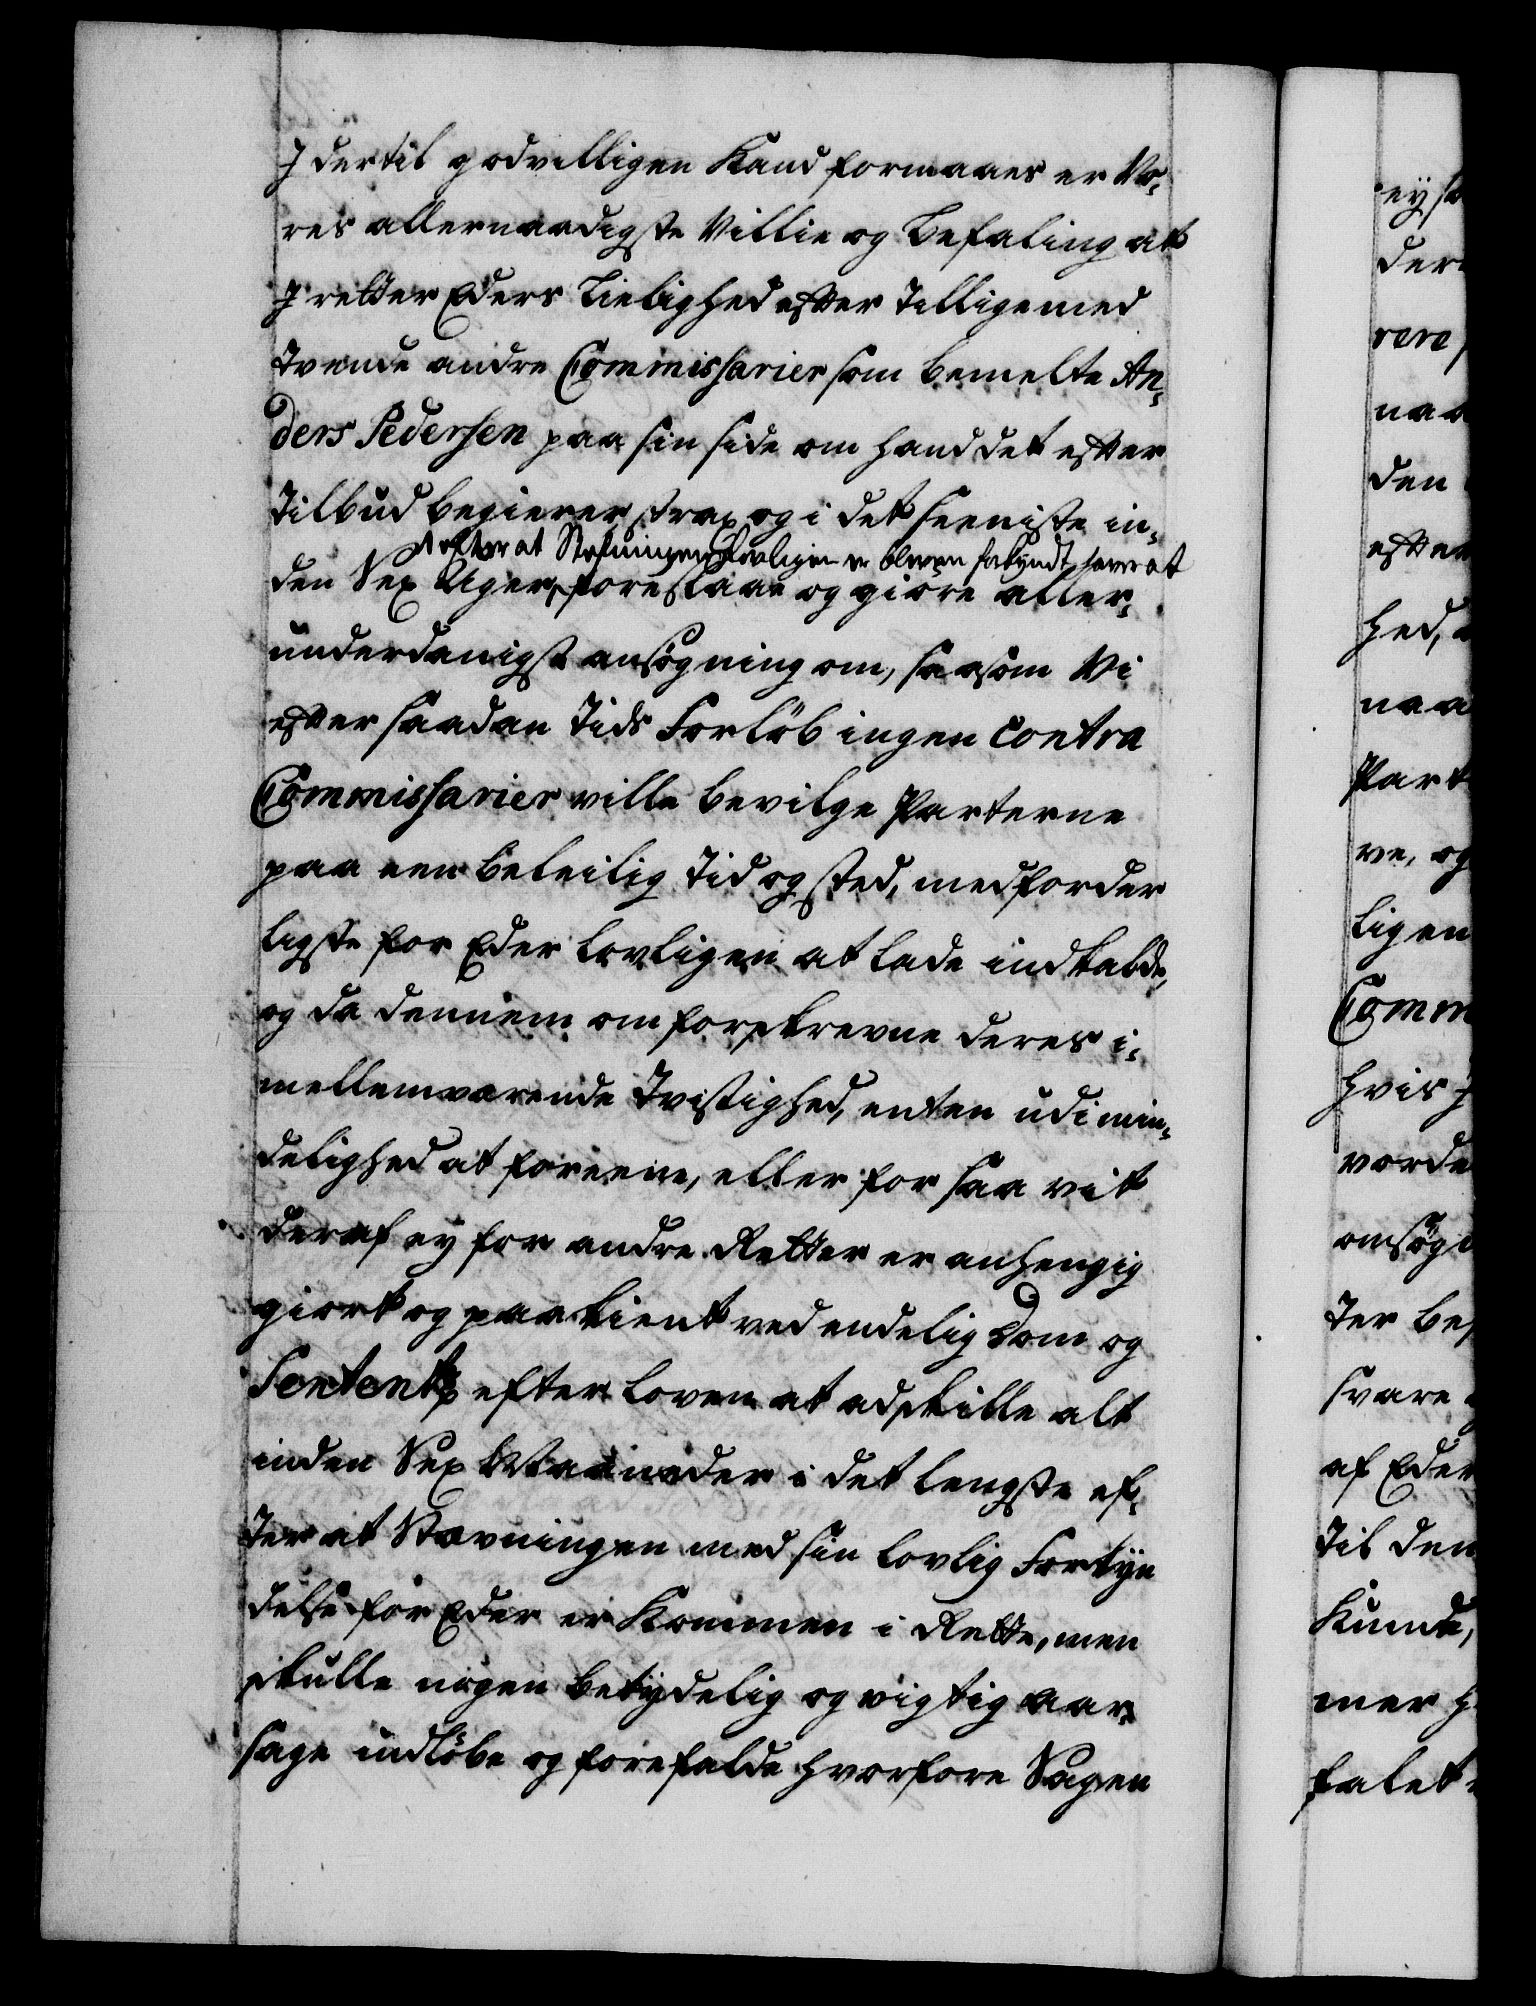 I dertil godvilligen Kand formaaes er Vo¸
res allernaadigste Villie og Befaling at
I retter Eders Leilighed efter tilligemed
tvende andre Commissarier som bemelte An¸
ders Pedersen paa sin side om hand det efter
tilbud begierer, strax og i det seeniste in¸
efter at Stefningen lovligen er bleven forkyndt, haver at
den Sex Uger, foreslaae og giøre aller¸
underdanigst ansøgning om, saasom Vi
efter saadan Tids Forløb ingen Contra
Commissarier ville bevilge Parterne
paa een beleilig tid og sted, med forder
ligste for Eder lovligen at lade indkalde,
og da dennem om forskrevne deres i¸
mellemværende Tvistighed, enten udi min¸
delighed at foreene, eller for saa vit
deraf ey for andre Retter er anhengig
giort og paakient ved endelig Dom og
Sententz efter Loven at adskille alt
inden Sex Maaneder i det lengste ef¸
ter at Stævningen med sin lovlig Forkyn
delse for Eder er Kommen i Rette, men
skulle nogen betydelig og vigtig aar¸
sage indløbe og forefalde hvorfore Sagen
ey
der
rere
naa
den
efter
hed,
naa
Part
ve, og
ligen
Comm
hvis I
vorde
omsøg
ter be
svare
af Eder
til den
Kunde,
mer h
falet